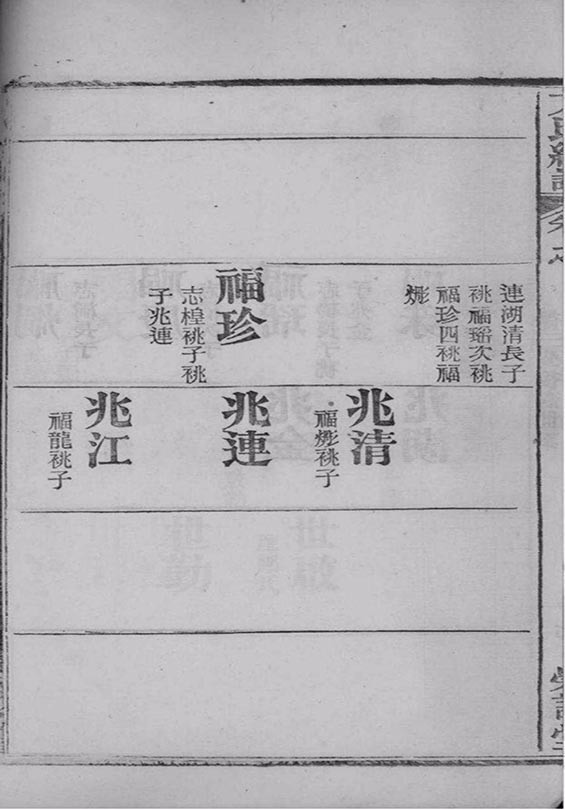 連湖清長子
祧福瑶次祧
福珍四祧福
福珍
志楻祧子祧
子兆連
兆清
祧子
兆連
兆江
福龍祧子